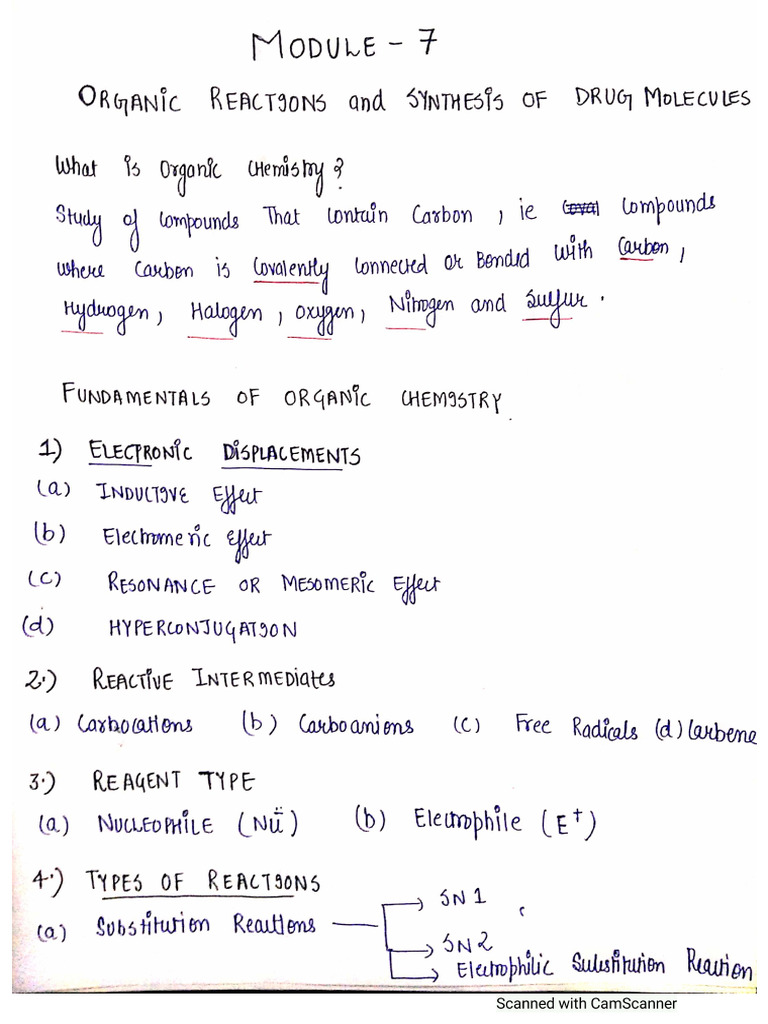 MODULE - 7
ORGANIC REACTIONS and SYNTHESIS OF DRUG MOLECULES
What is Organic Chemistry?
Study of Compounds That Contain Carbon, ie Compounds
where Carbon is Covalently Connected or Bonded with Carbon,
Hydrogen, Halogen, Oxygen, Nitrogen and Sulfur.
FUNDAMENTALS OF ORGANIC CHEMISTRY.
1) ELECTRONIC DISPLACEMENTS
(a) INDUCTIVE Effect
(b) Electromeric Effect
(c) RESONANCE OR MESOMERIC Effect
(d) HYPERCONJUGATION
2.) REACTIVE INTERMEDIATES
(a) Carbocations (b) Carboanions (c) Free Radicals (d) Carbene
3.) REAGENT TYPE
(a) NUCLEOPHILE (Nü) (b) Electrophile (E⁺)
4.) TYPES OF REACTIONS
(a) Substitution Reactions → SN1
→ SN2
→ Electrophilic Substitution Reaction
Scanned with CamScanner